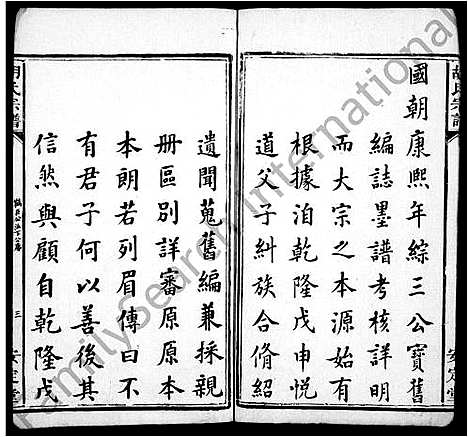 國朝康熙年綜三公寶舊
編誌墨譜考核詳明
而大宗之本源始有
根據洎乾隆戊申悅
道父子糾族合脩紹
遺聞蒐舊編兼採親
册區別詳審原原本
本朗若列眉傳曰不
有君子何以善後其
信然與顧自乾隆戊
胡氏宗譜
三
安定堂
胡氏宗譜
安定堂
FamilySearch International